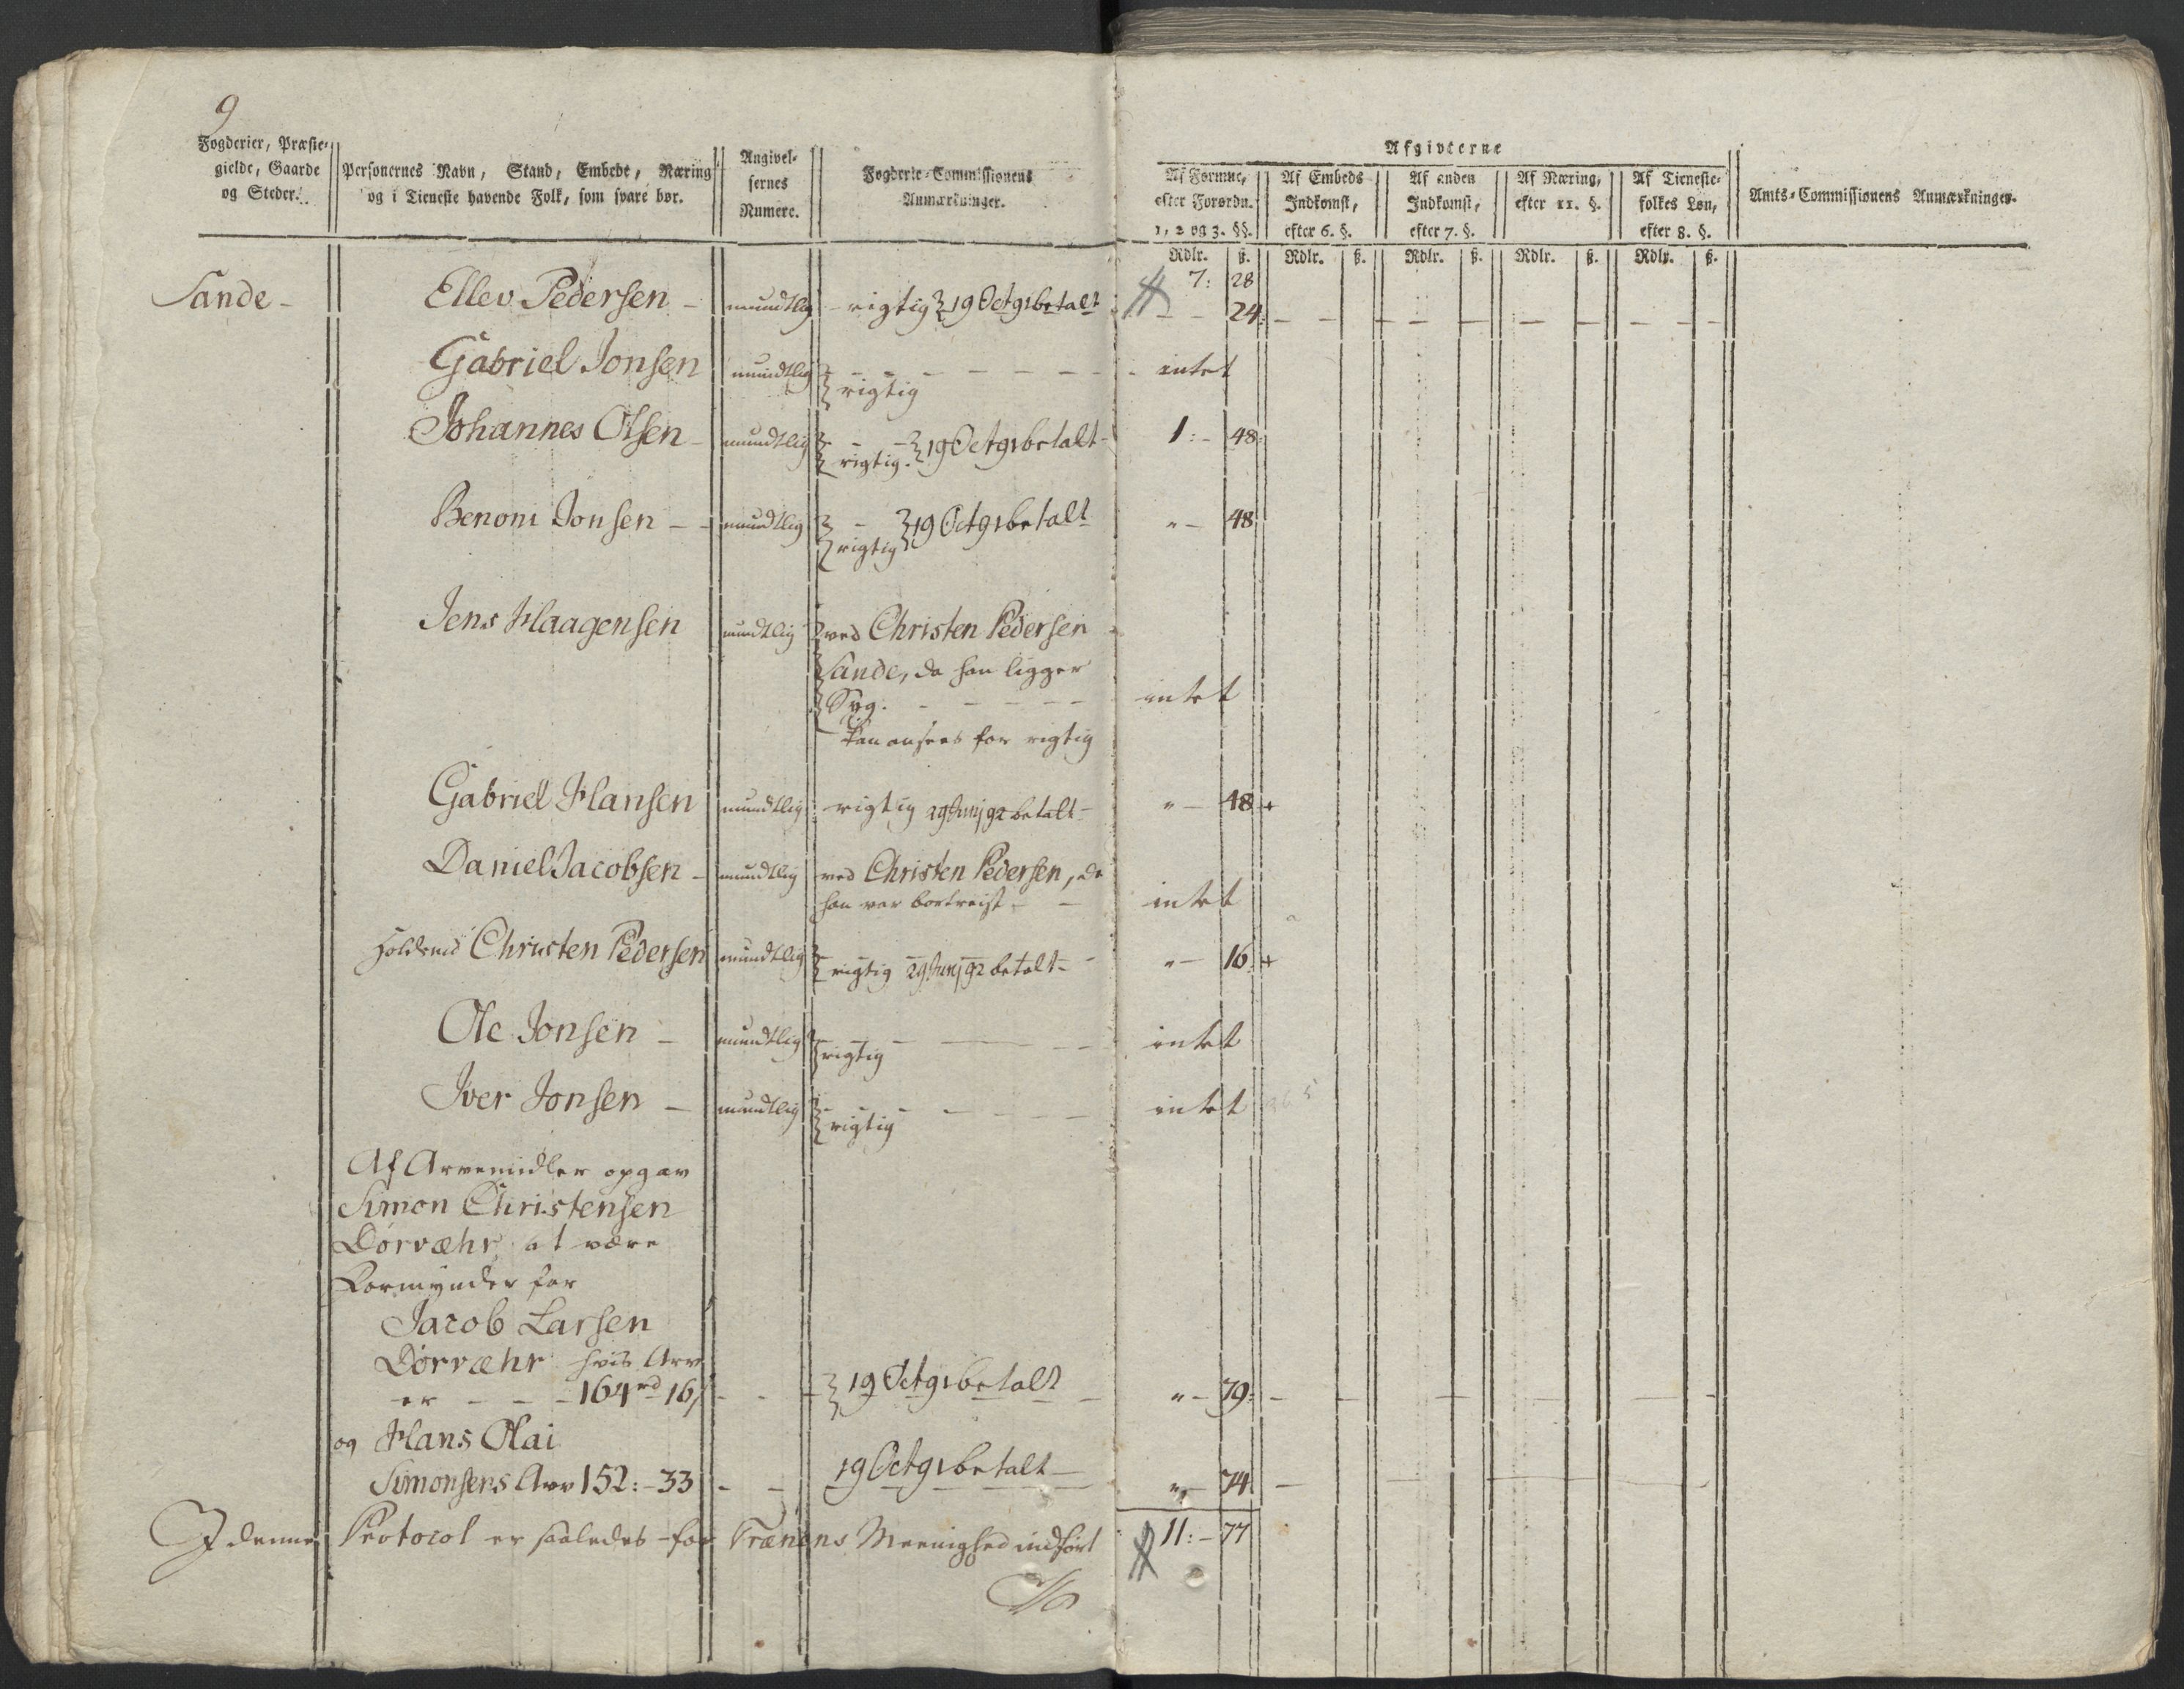 9
Fogderier, Præste-
gielde, Gaarde
og Steder.
Personernes Navn, Stand, Embede, Næring
og i Tieneste havende Folk, som svare bør.
Angivel-
sernes
Numere.
Fogderie-Commissionens
Anmærkninger.
Afgivterne
Af Formue,
efter Forordn.
1, 2 og 3. §§.
Af Embeds
Indkomst,
efter 6. §.
Af anden
Indkomst,
efter 7. §.
Af Næring,
efter 11. §.
Af Tieneste-
folkes Løn,
efter 8. §.
Amts-Commissionens Anmærkninger.
Rdlr. ß. Rdlr. ß. Rdlr. ß. Rdlr. ß. Rdlr. ß.
7: 28
Sande - Ellev Pedersen - mundtlig - rigtig 19 Oct 91 betalt - - 24:
Gabriel Jonsen mundtlig - - - - - - - - intet
rigtig
Johannes Olsen - mundtlig - - 19 Oct 91 betalt - 1: - 48:
rigtig.
Benoni Jonsen - - mundtlig - 19 Oct 91 betalt " - 48
rigtig
Jens Haagensen mundtlig ved Christen Pedersen
Sande, da han ligger
Syg. - - - - - intet
kan ansees for rigtig
Gabriel Hansen mundtlig rigtig 29 Junj 92 betalt - " - 48 +
Daniel Jacobsen - mundtlig ved Christen Pedersen, da
han var bortreist - - intet
Christen Pedersen mundtlig rigtig 29 Junj 92 betalt - " - 16 +
Ole Jonsen - mundtlig - - - - - intet
rigtig
Iver Jonsen - mundtlig - - - - - - intet
rigtig
Af Arvemidler opgav
Simon Christensen
Dørvæhr at være
Formynder for
Jacob Larsen
Dørvæhr hvis Arv
er - - - 164 rd 16 ß - - 19 Oct 91 betalt - " - 79: -
og Hans Olai
Simonsens Arv 152: - 33 - - 19 Oct 91 betalt - " - 74 -
I denne Protocol er saaledes for Trænens Meenighed indført 11: - 77